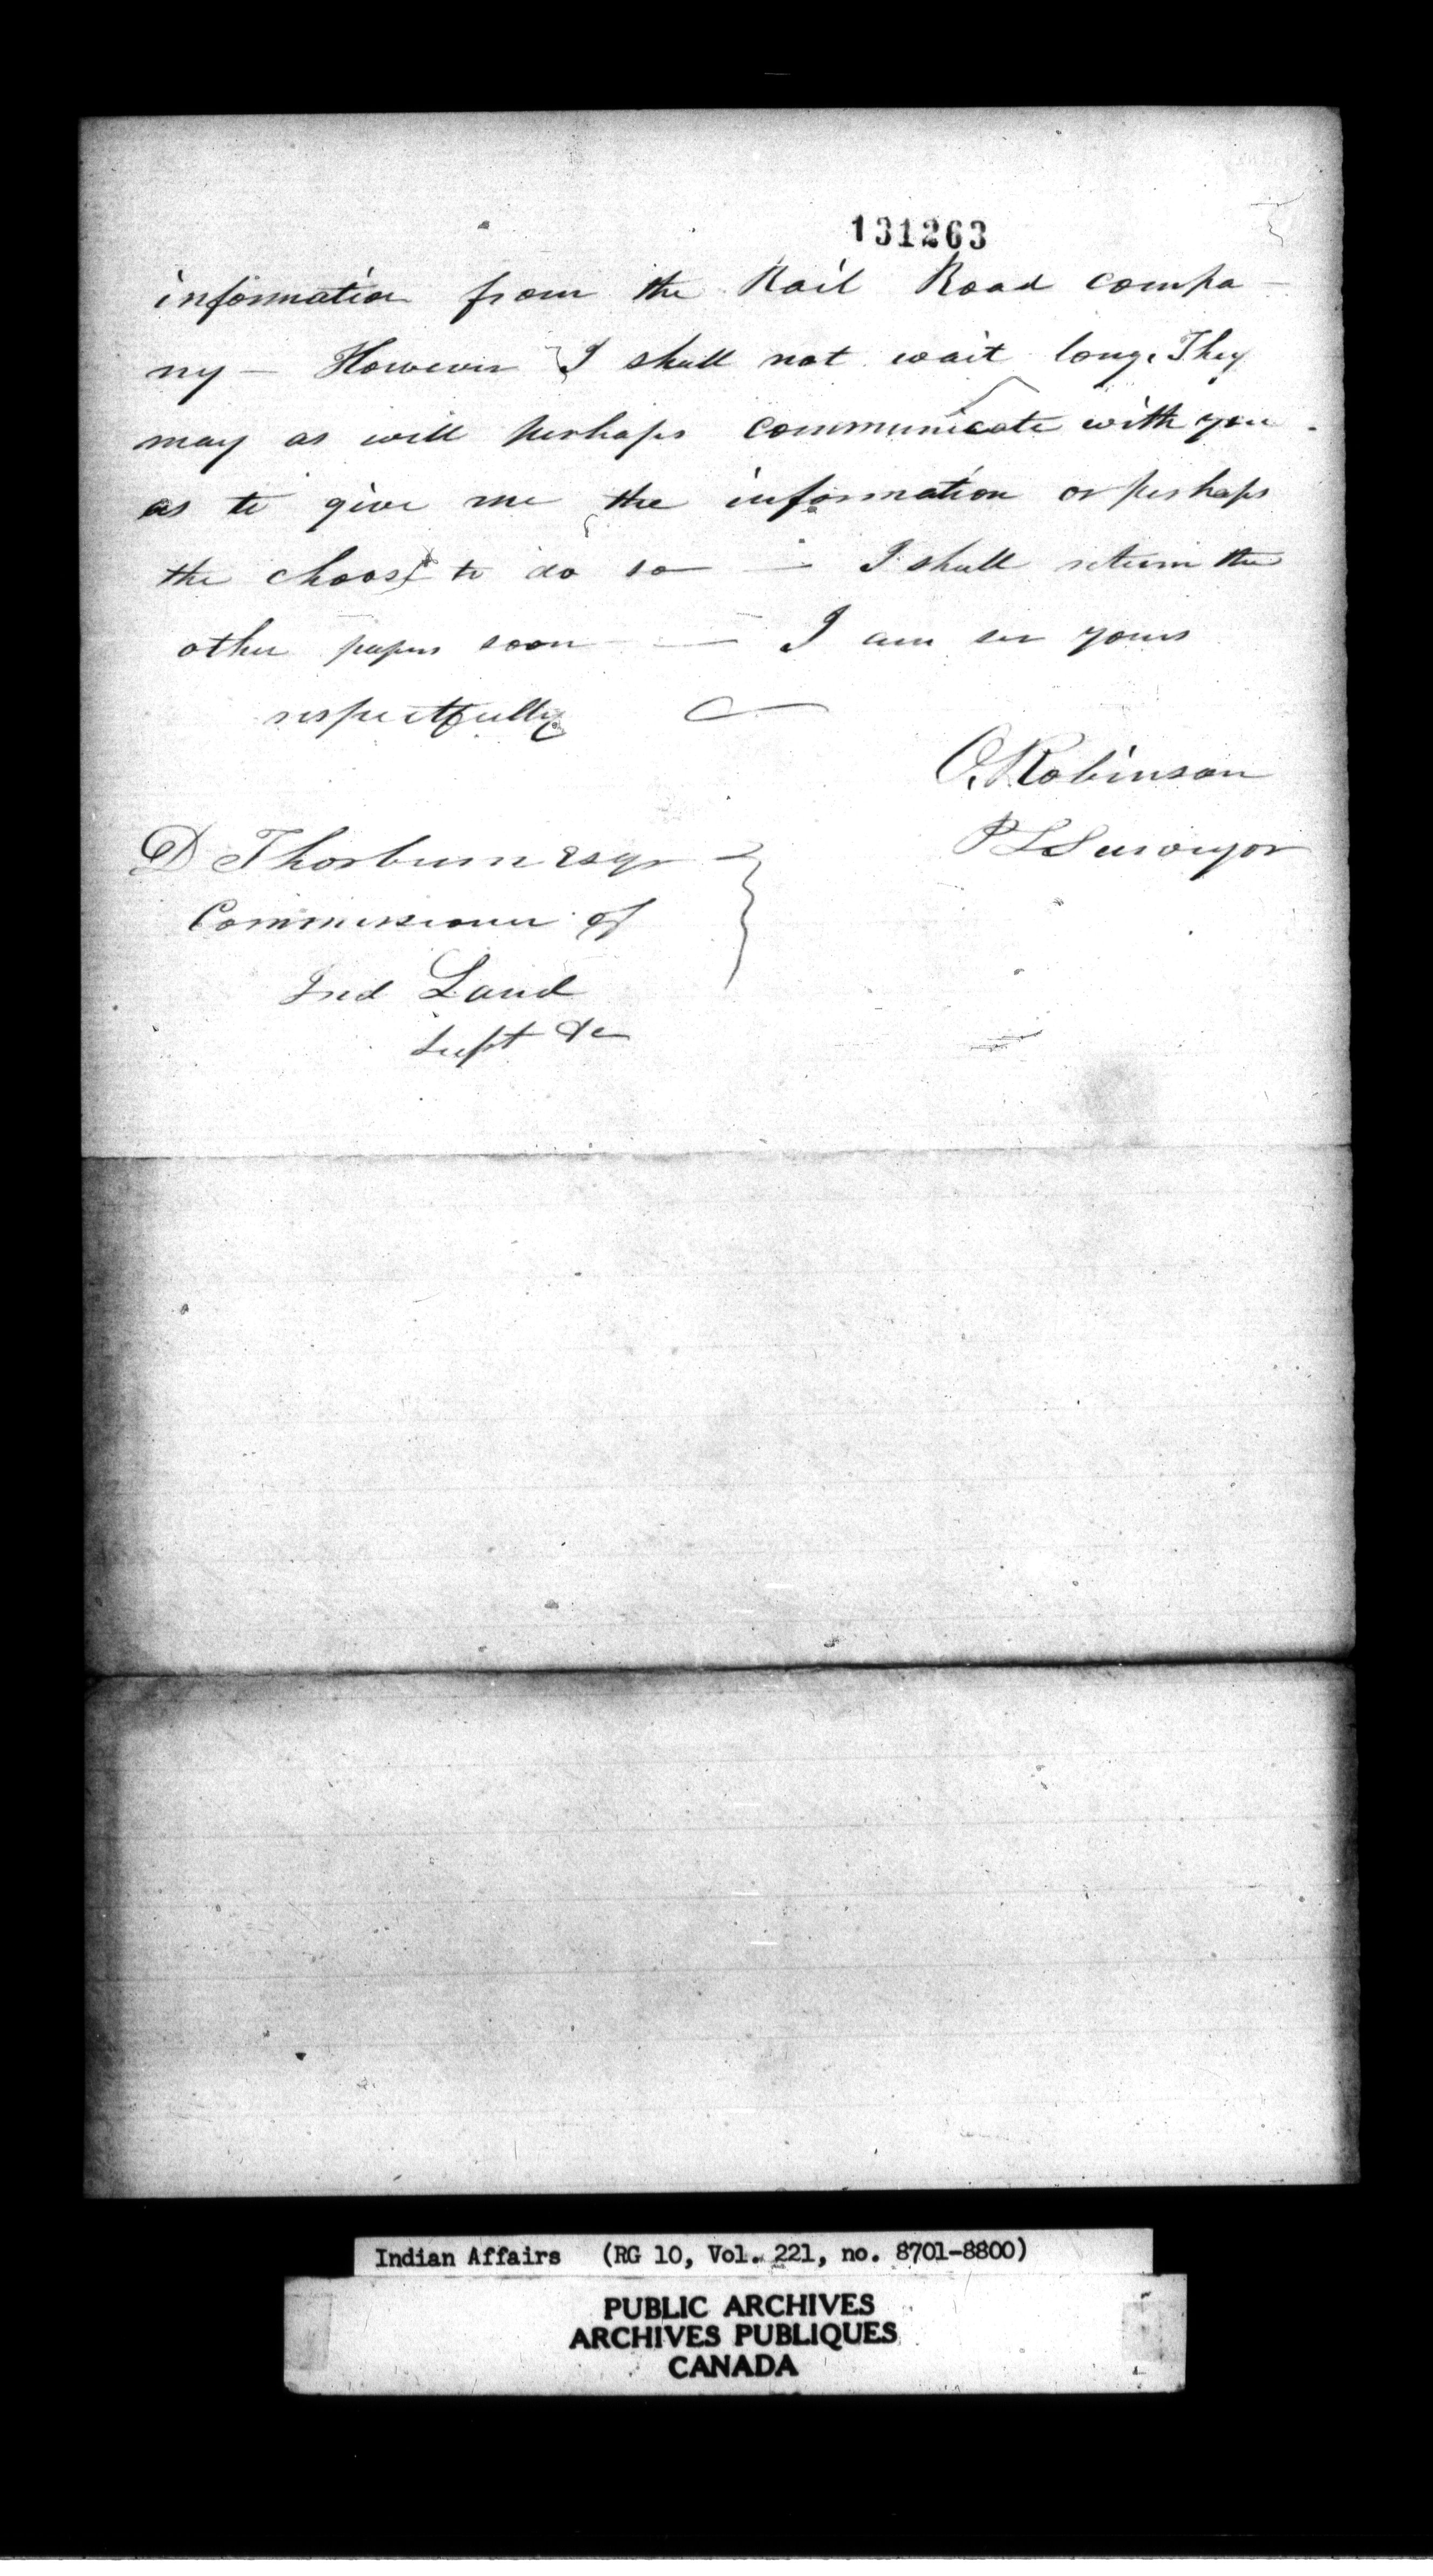 131263
information from the Rail Road compa-
ny — However I shall not wait long. They
may as will perhaps communicate with you
as to give me the information or perhaps
the choose to do so — I shall return the
other papers soon — I am sir yours
respectfully
O. Robinson
P L Surveyor
D Thorburn Esqr
Commissioner of
Ind Land
Supt &c
Indian Affairs (RG 10, Vol. 221, no. 8701-8800)
PUBLIC ARCHIVES
ARCHIVES PUBLIQUES
CANADA